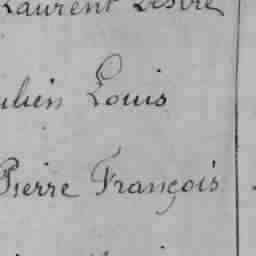 Laurent Désiré
ulien Louis
Pierre François